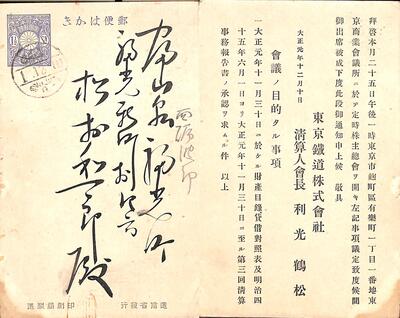 拜啓本月二十五日午後一時東京市麴町區有樂町一丁目一番地東
京商業會議所ニ於テ定時株主總會ヲ開キ左記事項議定致度候間
御出席被成下度此段御通知申上候　敬具
大正元年十二月十日
東京鐵道株式會社
淸算人會長　利光鶴松
會議ノ目的タル事項
一大正元年十一月三十日ニ於ケル財產目錄貸借對照表及明治四
十五年六月一日ヨリ大正元年十一月三十日ニ至ル第三回淸算
事務報告書ノ承認ヲ求ムル件　以上
郵便はかき
富山縣
松村和一郎殿
遞信省發行
印刷局製造